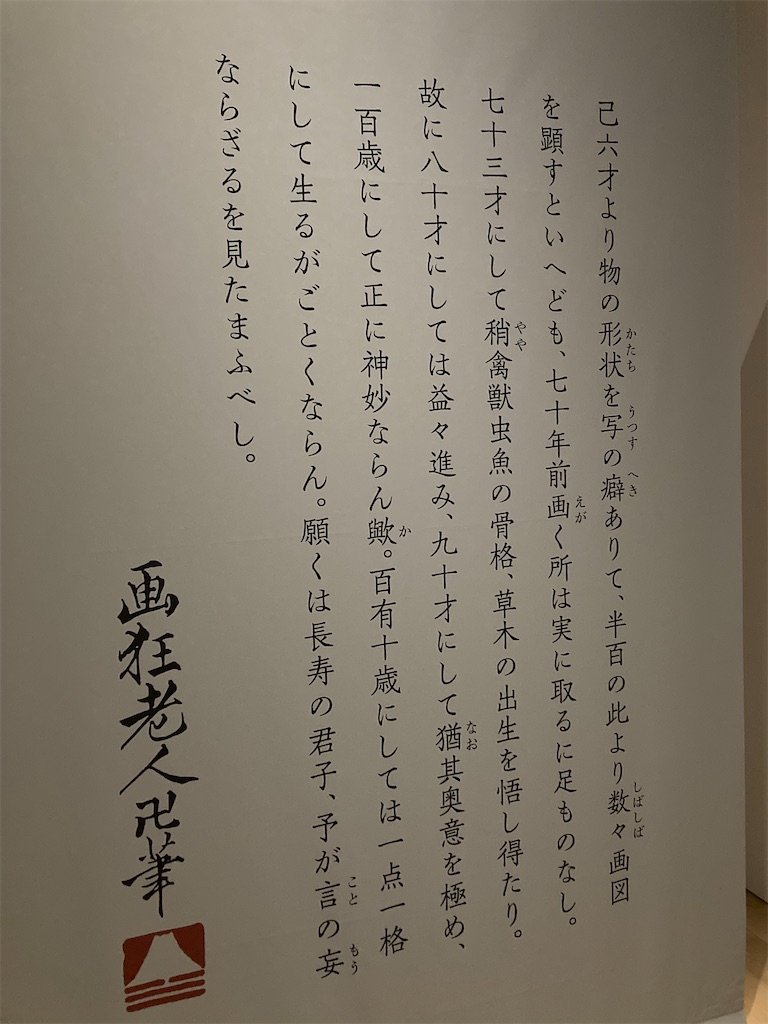 己六才より物の形状を写の癖ありて、半百の此より数々画図
を顕すといへども、七十年前画く所は実に取るに足ものなし。
七十三才にして稍禽獣虫魚の骨格、草木の出生を悟し得たり。
故に八十才にしては益々進み、九十才にして猶其奥意を極め、
一百歳にして正に神妙ならん歟。百有十歳にしては一点一格
にして生るがごとくならん。願くは長寿の君子、予が言の妄
ならざるを見たまふべし。
画狂老人卍筆